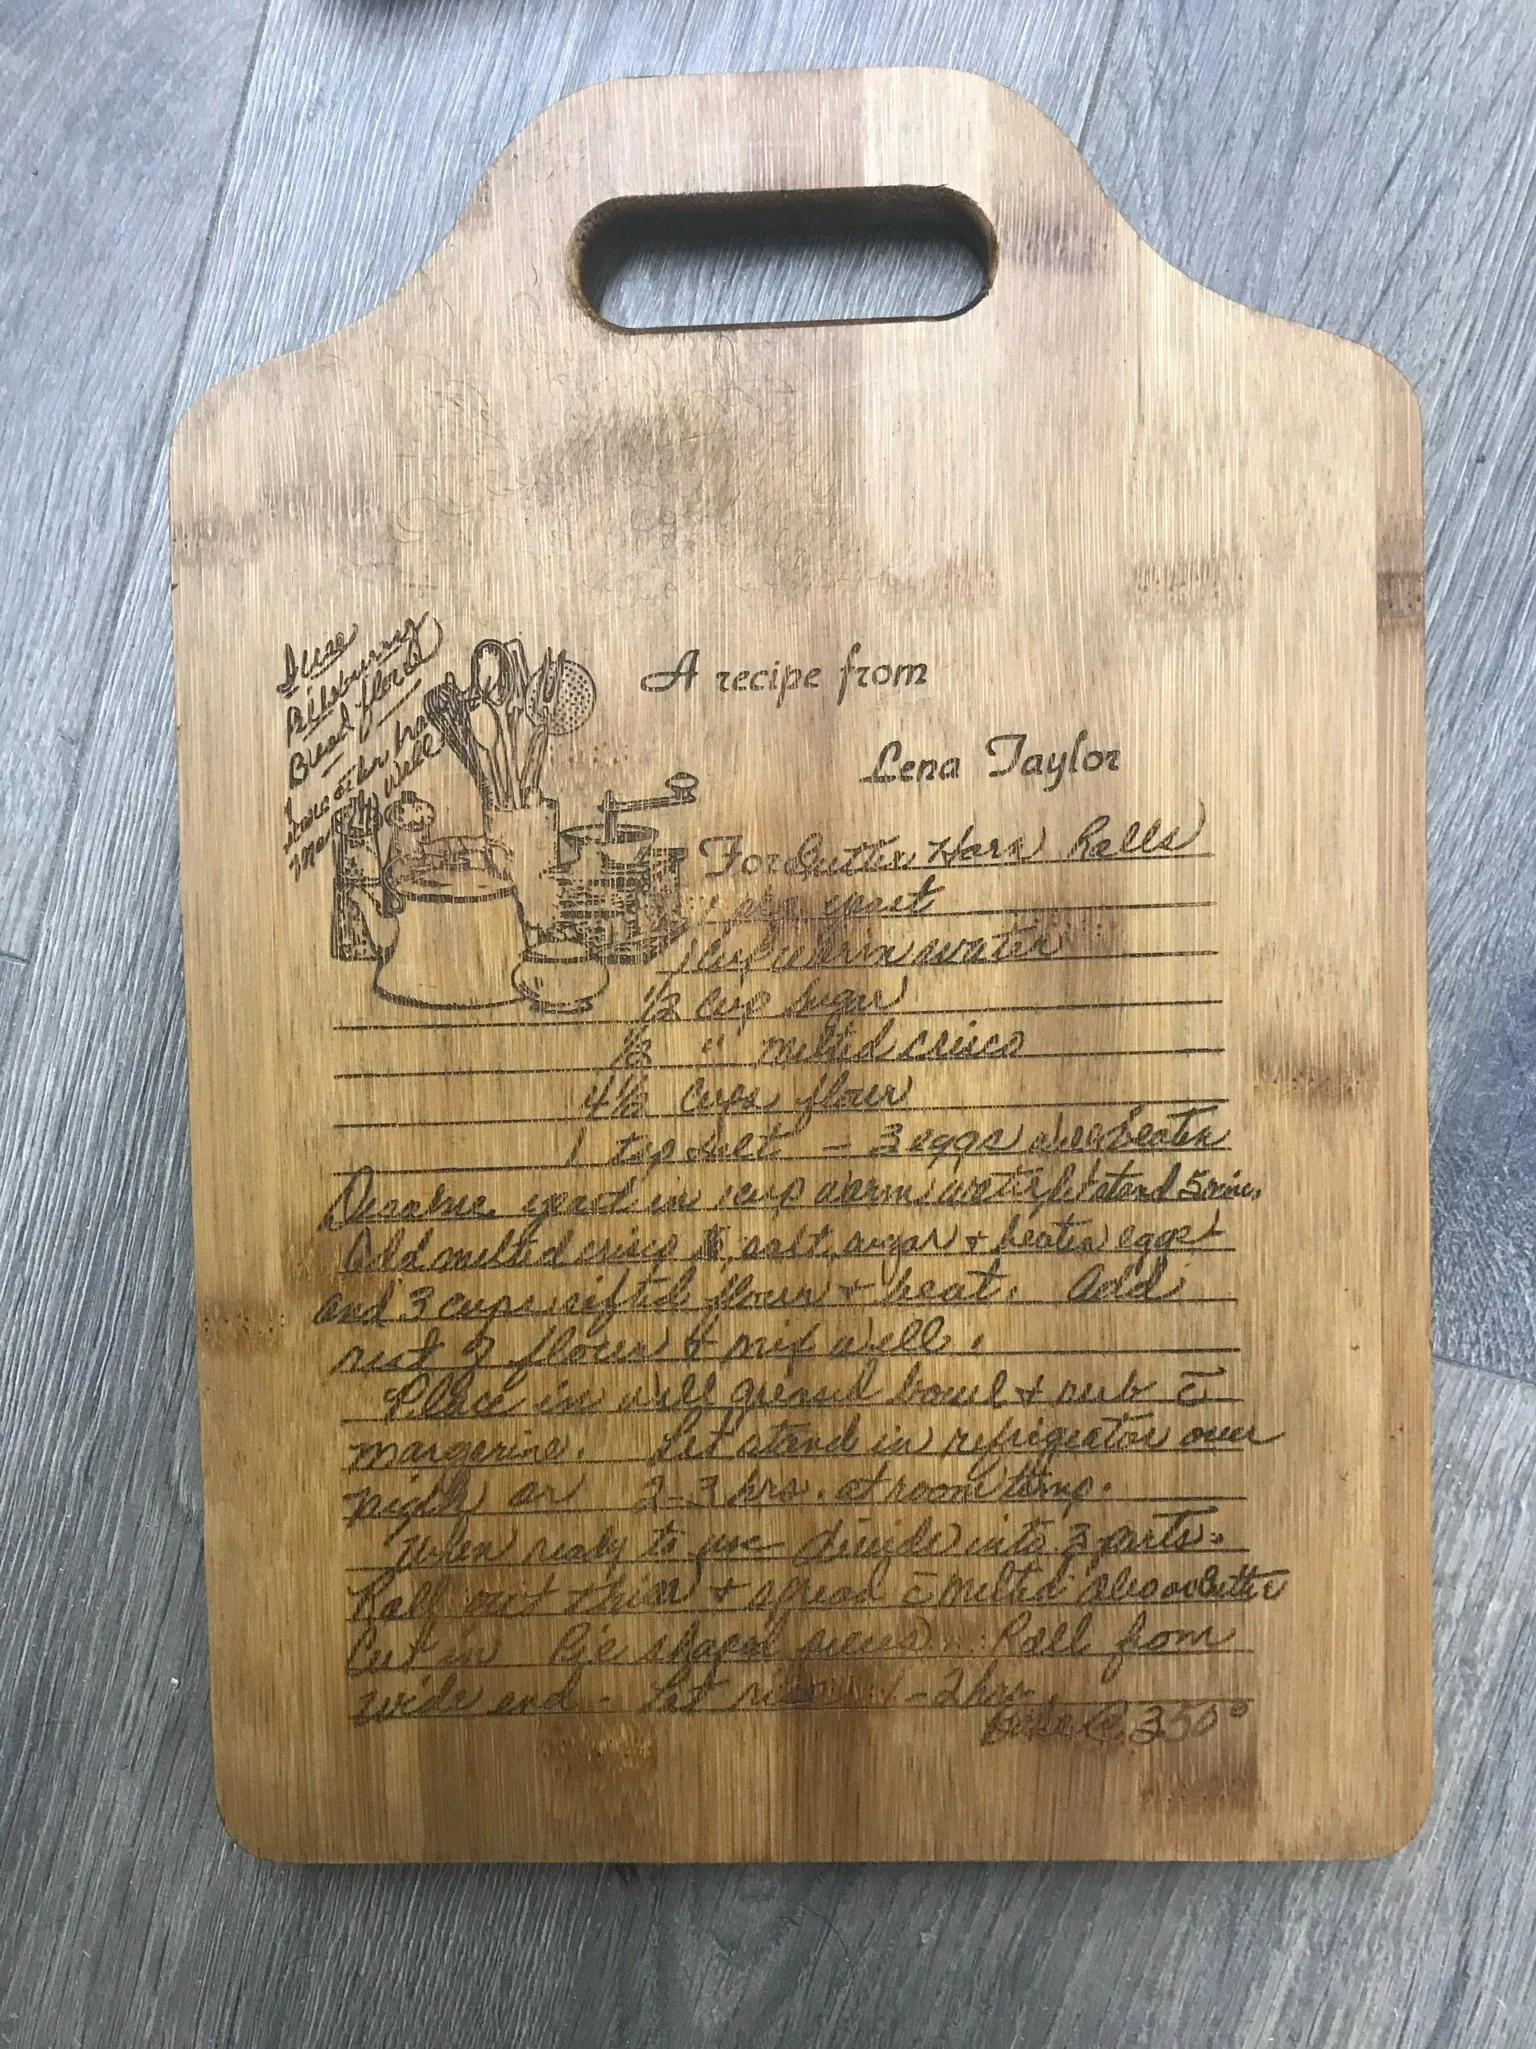 I use
Pillsbury
Bread flour
well
A recipe from
Lena Taylor
For Butter Horn Rolls
1 pkg yeast
1 cup warm water
1/2 cup sugar
1/2 " melted crisco
4 1/2 cups flour
1 tsp salt - 3 eggs well beaten
Desolve yeast in 1 cup warm water let stand 5 min.
Add melted crisco, salt, sugar + beaten eggs
and 3 cups sifted flour + beat. Add
rest of flour + mix well.
Place in well greased bowl + rub c̄
margerine. Let stand in refrigeator over
night or 2-3 hrs. at room temp.
When ready to use divide into 3 parts.
Roll out thin + spread c̄ melted oleo or butter
Cut in Pie shaped pieces. Roll from
wide end - Let rise 1-2 hrs.
Bake @ 350°